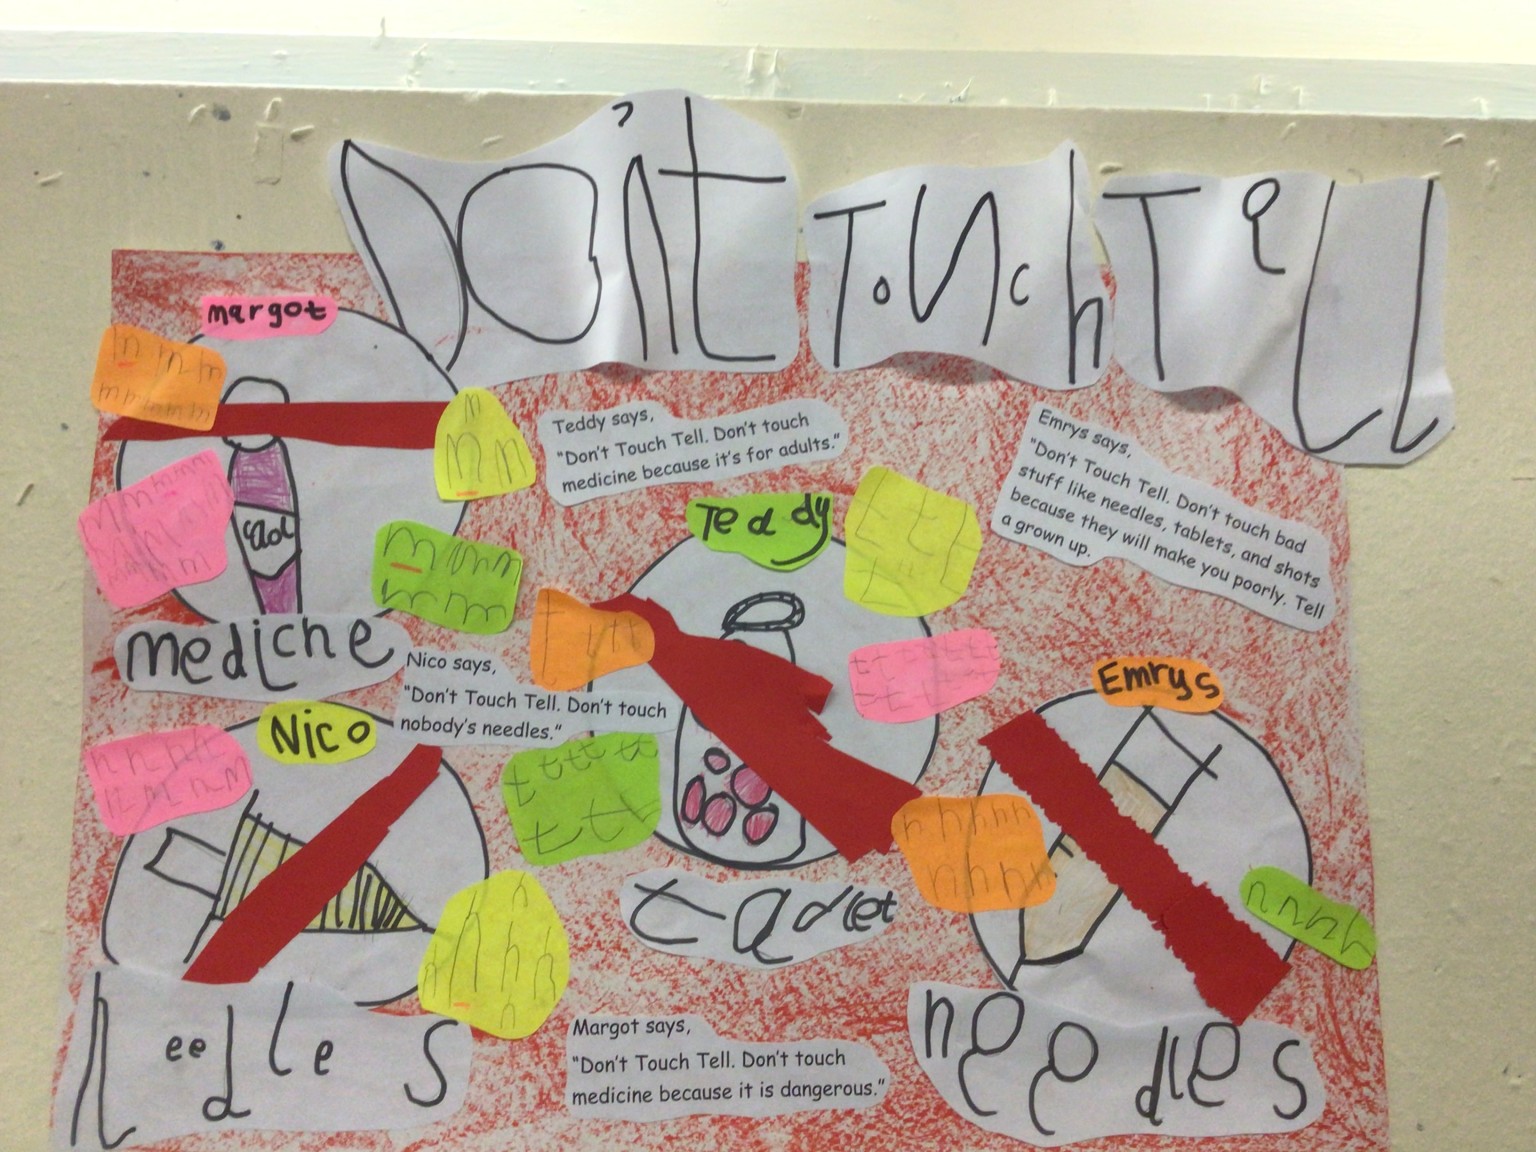 Don't Touch Tell
margot
Teddy says,
"Don't Touch Tell. Don't touch
medicine because it's for adults."
Emrys says,
"Don't Touch Tell. Don't touch bad
stuff like needles, tablets, and shots
because they will make you poorly. Tell
a grown up.
Teddy
mediche
Nico says,
"Don't Touch Tell. Don't touch
nobody's needles."
Emrys
Nico
tablet
needles
needles
Margot says,
"Don't Touch Tell. Don't touch
medicine because it is dangerous."